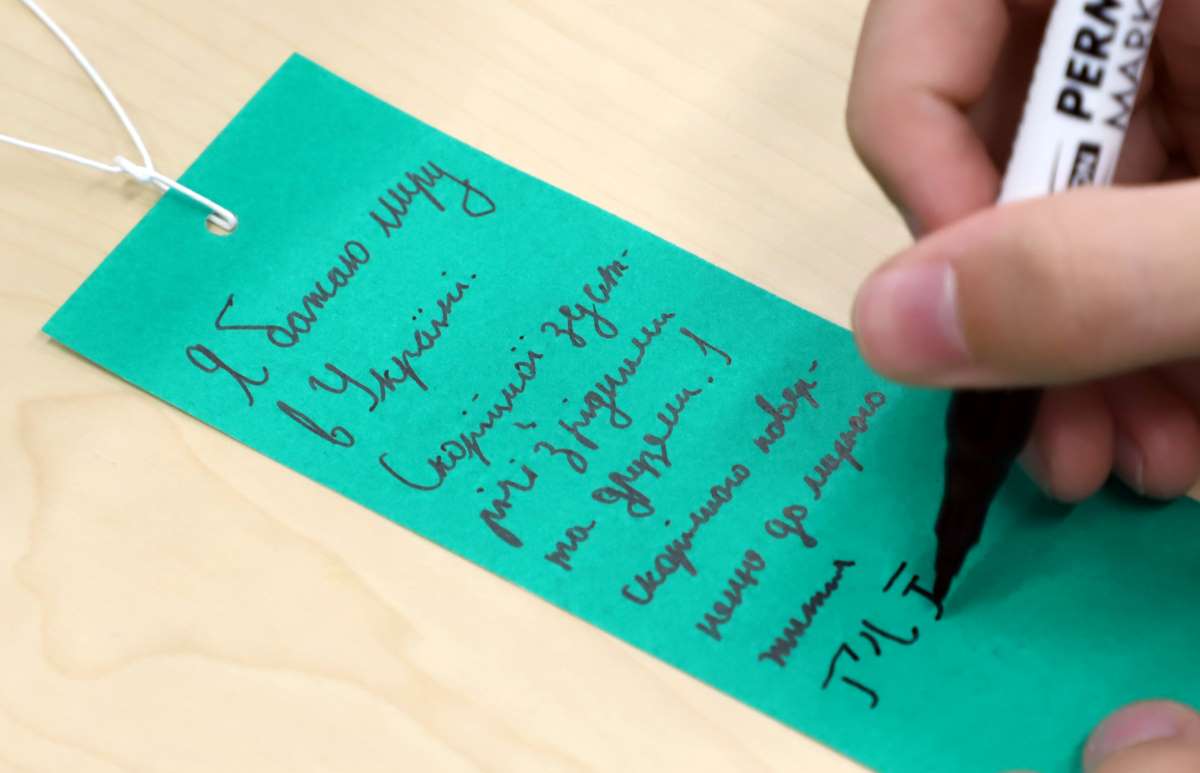 Я бажаю миру
в Україні.
Скорішої зуст-
річі з рідними
та друзями. !
скорішого повер-
нення до мирного
життя
PERM
MARK